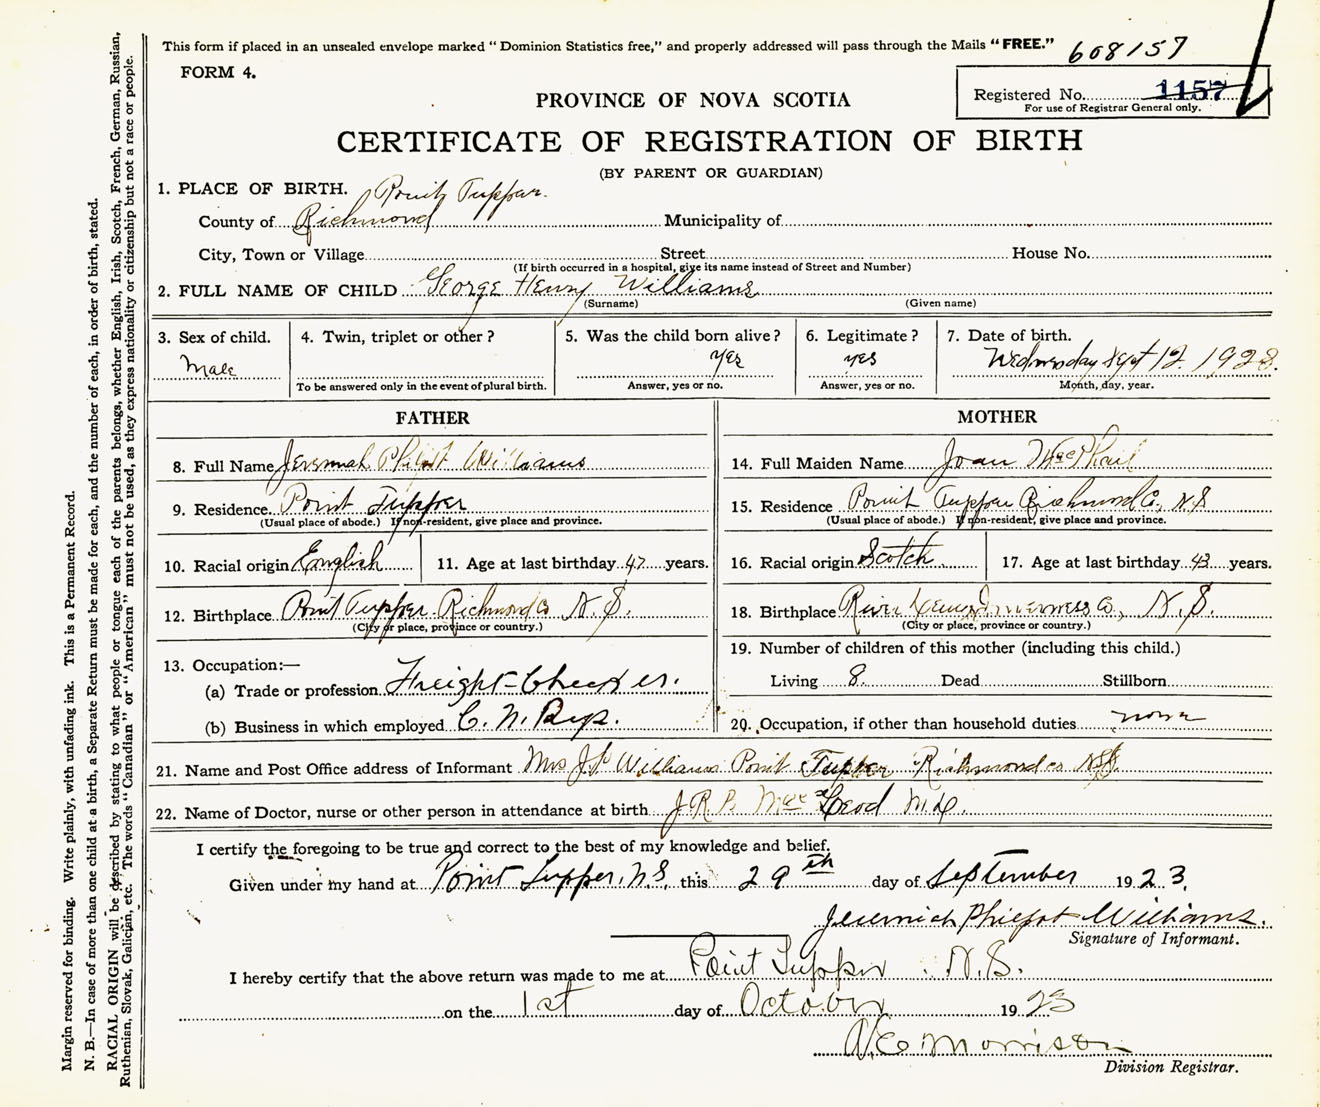 This form if placed in an unsealed envelope marked "Dominion Statistics free," and properly addressed will pass through the Mails "FREE." 608157
FORM 4.
Registered No. 1157
For use of Registrar General only.
PROVINCE OF NOVA SCOTIA
CERTIFICATE OF REGISTRATION OF BIRTH
(BY PARENT OR GUARDIAN)
1. PLACE OF BIRTH. Point Tupper.
County of Richmond Municipality of
City, Town or Village Street House No.
(If birth occurred in a hospital, give its name instead of Street and Number)
2. FULL NAME OF CHILD George Henry Williams
(Surname) (Given name)
3. Sex of child. 4. Twin, triplet or other? 5. Was the child born alive? 6. Legitimate? 7. Date of birth.
Male yes yes Wednesday Sept 12. 1923.
To be answered only in the event of plural birth. Answer, yes or no. Answer, yes or no. Month, day, year.
FATHER MOTHER
8. Full Name Jeremiah Williams 14. Full Maiden Name Joan MacPhail
9. Residence Point Tupper 15. Residence Point Tupper Richmond Co, N.S
(Usual place of abode.) If non-resident, give place and province. (Usual place of abode.) If non-resident, give place and province.
10. Racial origin English 11. Age at last birthday 47 years. 16. Racial origin Scotch 17. Age at last birthday 43 years.
12. Birthplace Point Tupper Richmond Co N.S. 18. Birthplace River Inverness Co., N.S.
(City or place, province or country.) (City or place, province or country.)
13. Occupation:— 19. Number of children of this mother (including this child.)
(a) Trade or profession Freight-Checker. Living 8. Dead Stillborn
(b) Business in which employed C. N. Rys. 20. Occupation, if other than household duties none
21. Name and Post Office address of Informant Mrs J.P Williams Point Tupper Richmond co N.S.
22. Name of Doctor, nurse or other person in attendance at birth J.R.P. MacLeod M.D.
I certify the foregoing to be true and correct to the best of my knowledge and belief.
Given under my hand at Point Tupper, N.S. this 29th day of September 1923.
Jeremiah Williams.
Signature of Informant.
I hereby certify that the above return was made to me at Point Tupper N.S.
on the 1st day of October 1923
Morrison
Division Registrar.
Margin reserved for binding. Write plainly, with unfading ink. This is a Permanent Record.
N. B.—In case of more than one child at a birth, a Separate Return must be made for each, and the number of each, in order of birth, stated.
RACIAL ORIGIN will be described by stating to what people or tongue each of the parents belongs, whether English, Irish, Scotch, French, German, Russian,
Ruthenian, Slovak, Galician, etc. The words "Canadian" or "American" must not be used, as they express nationality or citizenship but not a race or people.